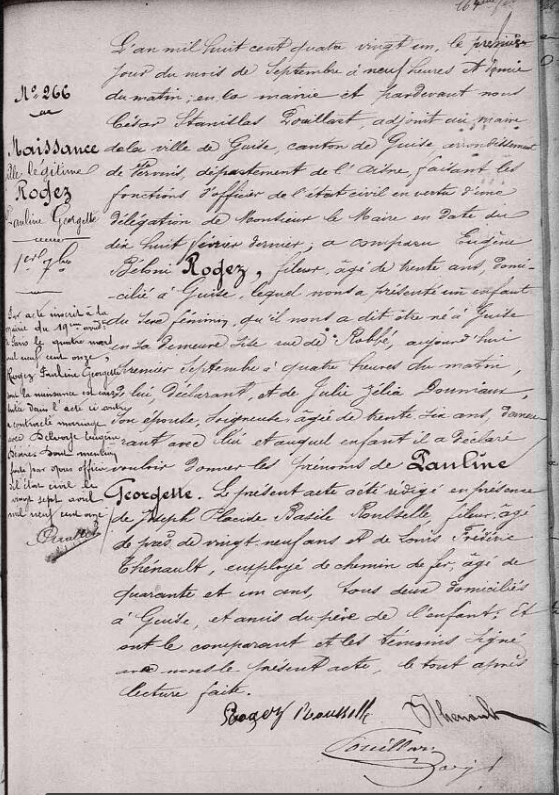 N° 266
Naissance
fille légitime
Rogez
Pauline Georgette
1er 7bre
L'an mil huit cent quatre vingt un, le premier
jour du mois de Septembre à neuf heures et demie
du matin, en la mairie et pardevant nous
César Stanislas Douillart, adjoint au maire
de la ville de Guise, canton de Guise, arrondissement
de Vervins, département de l'Aisne, faisant les
fonctions d'officier de l'état civil en vertu d'une
délégation de Monsieur le Maire en date du
dix huit février dernier, a comparu Eugène
Béloni Rogez, fileur, âgé de trente ans, domi-
-cilié à Guise, lequel nous a présenté un enfant
du sexe féminin, qu'il nous a dit être né à Guise
en sa demeure sise rue de Robbé, aujourd'hui
premier Septembre à quatre heures du matin,
de lui, déclarant, et de Julie Zélia
son épouse, soigneuse, âgée de trente six ans, demeu-
rant avec lui et auquel enfant il a déclaré
vouloir donner les prénoms de Pauline
Georgette. Le présent acte acté rédigé en présence
de Joseph Basile Rousselle fileur, âgé
de près de vingt-neuf ans et de Louis Frédéric
Thénault, employé de chemin de fer, âgé de
quarante et un ans, tous deux domiciliés
à Guise, et amis du père de l'enfant. Et
ont le comparant et les témoins signé
avec nous le présent acte, le tout après
lecture faite.
Par acte inscrit à la
mairie du 19me arrdt
de Paris le quatre mars
mil neuf cent onze,
Rogez Pauline Georgette
dont la naissance est cons-
tatée dans l'acte ci contre
a contracté mariage
avec
mention
faite par nous officier
de l'état civil le
vingt sept avril
mil neuf cent onze
Rogez Rousselle
Thénault